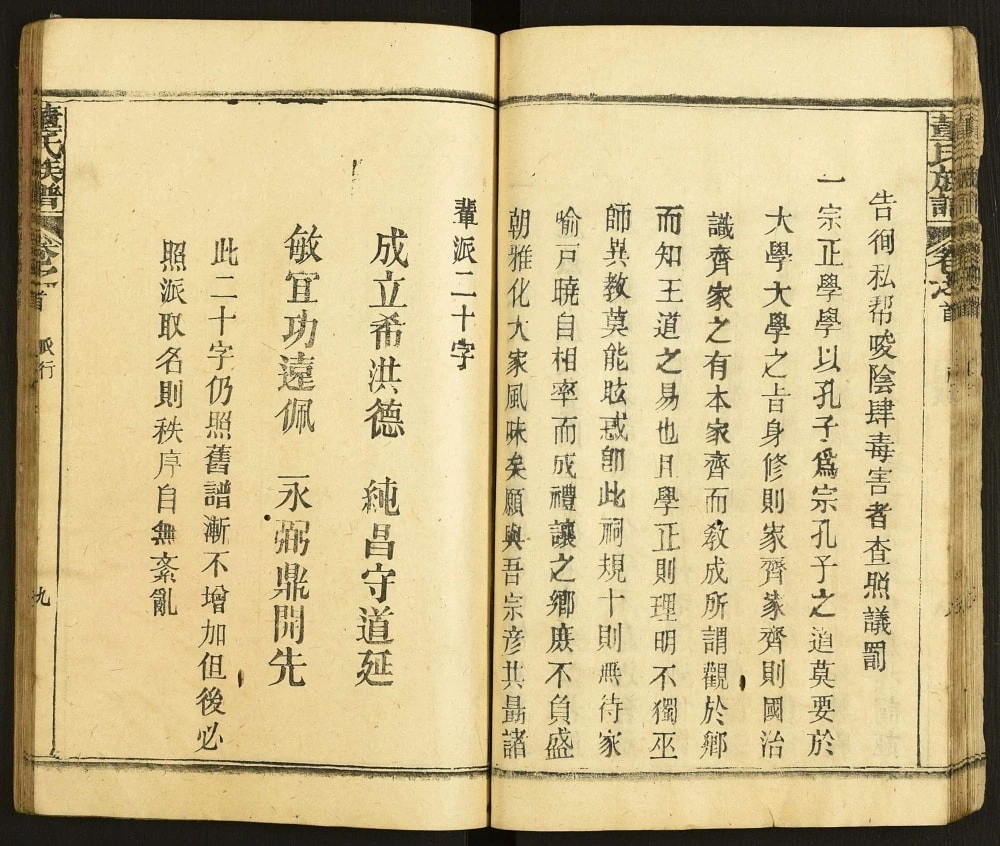 告徇私帮唆陰肆毒害者查照議罰
一宗正學學以孔子為宗孔子之道莫要於
大學大學之旨身修則家齊家齊則國治
識齊家之有本家齊而教成所謂觀於鄉
而知王道之易也且學正則理明不獨巫
師異教莫能眩惑即此祠規十則無待家
喻戶曉自相率而成禮讓之鄉庶不負盛
朝雅化大家風味矣願與吾宗彥共勗諸
輩派二十字
成立希洪德 純昌守道延
敏宜功遠佩 永弼鼎開先
此二十字仍照舊譜漸不增加但後必
照派取名則秩序自無紊亂
董氏族譜 卷之首 派行 九